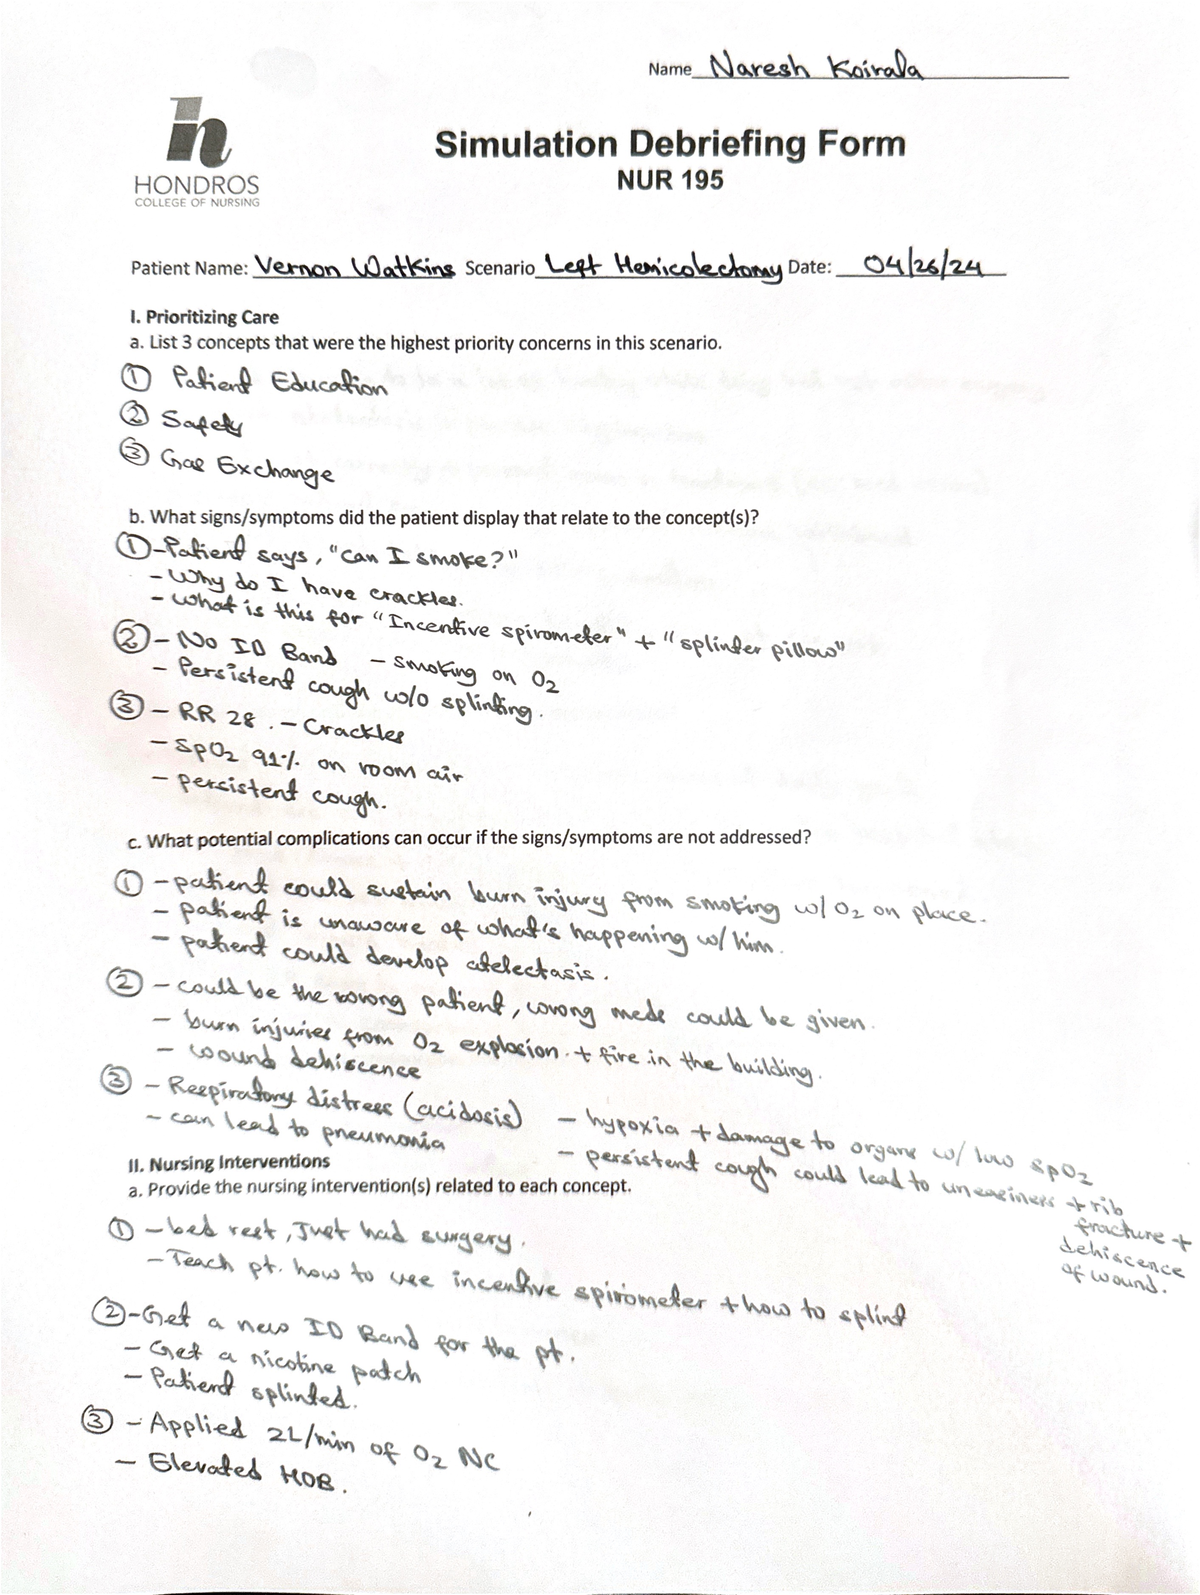 Name Naresh Koirala
HONDROS
COLLEGE OF NURSING
Simulation Debriefing Form
NUR 195
Patient Name: Vernon Watkins Scenario Left Hemicolectomy Date: 04/26/24
I. Prioritizing Care
a. List 3 concepts that were the highest priority concerns in this scenario.
① Patient Education
② Safety
③ Gas Exchange
b. What signs/symptoms did the patient display that relate to the concept(s)?
① - Patient says, "Can I smoke?"
- Why do I have crackles.
- What is this for "Incentive spirometer" + "splinter pillow"
② - No ID Band - smoking on O2
- Persistent cough w/o splinting.
③ - RR 28. - Crackles
- SpO2 91% on room air
- persistent cough.
c. What potential complications can occur if the signs/symptoms are not addressed?
① - patient could sustain burn injury from smoking w/ O2 on place.
- patient is unaware of what's happening w/ him.
- patient could develop atelectasis.
② - could be the wrong patient, wrong meds could be given.
- burn injuries from O2 explosion. + fire in the building.
- wound dehiscence
③ - Respiratory distress (acidosis)
- can lead to pneumonia
- hypoxia + damage to organs w/ low SpO2
- persistent cough could lead to uneasiness + rib
fracture +
dehiscence
of wound.
II. Nursing Interventions
a. Provide the nursing intervention(s) related to each concept.
① - bed rest, Just had surgery.
- Teach pt. how to use incentive spirometer + how to splint
② - Get a new ID Band for the pt.
- Get a nicotine patch
- Patient splinted.
③ - Applied 2L/min of O2 NC
- Elevated HOB.